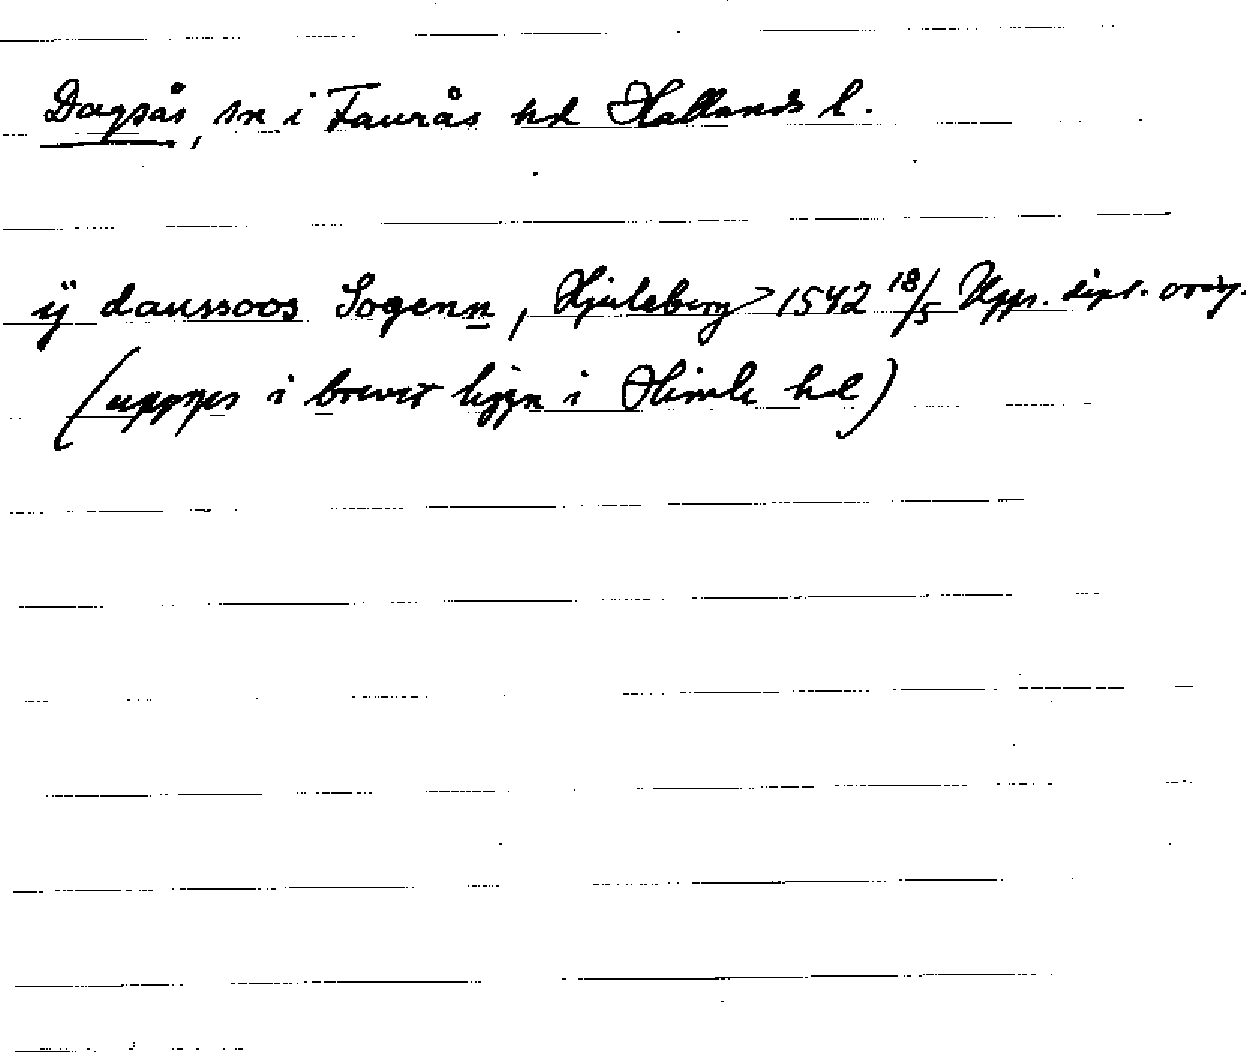 Dagsås, sn i Faurås hd Hallands l.
ÿ daussoos Sogenn, Hjuleberg 1542 18/5 Upps. dipl. orig.
(uppges i brevet ligga i Himle hd)